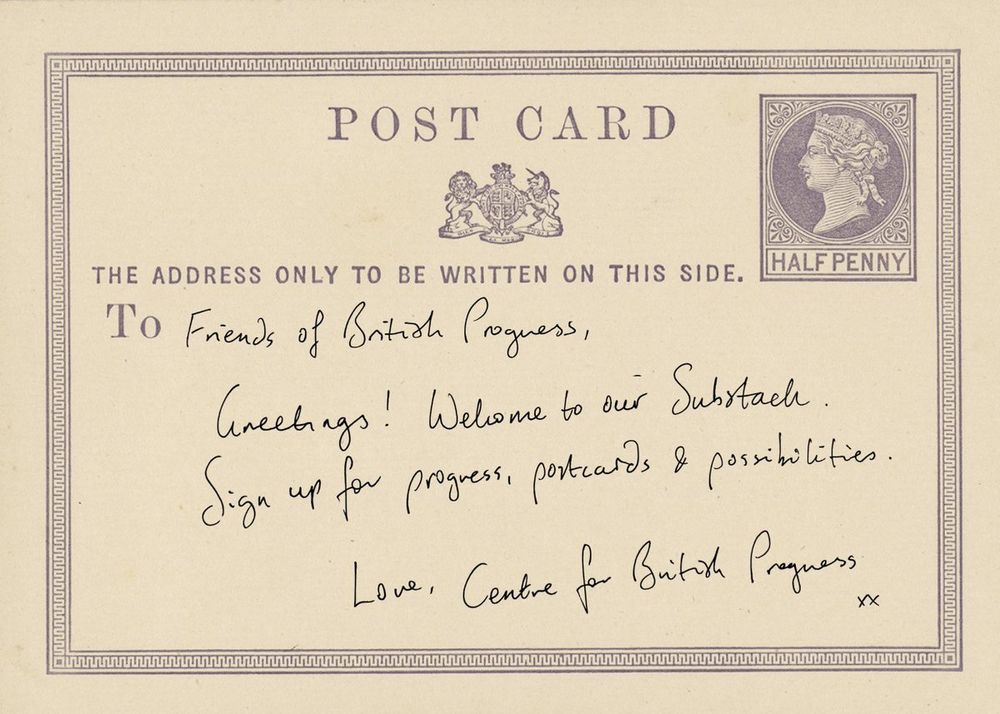 POST CARD
THE ADDRESS ONLY TO BE WRITTEN ON THIS SIDE.
HALFPENNY
To Friends of British Progress,
Greetings! Welcome to our Substack.
Sign up for progress, postcards & possibilities.
Love, Centre for British Progress
xx